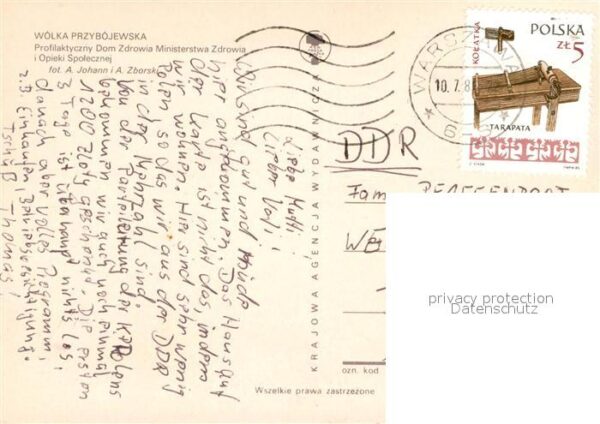 WÓLKA PRZYBÓJEWSKA
Profilaktyczny Dom Zdrowia Ministerstwa Zdrowia
i Opieki Społecznej
fot. A. Johann i A. Zborski
KRAJOWA AGENCJA WYDAWNICZA
POLSKA
ZŁ 5
KOŁATKA
TARAPATA
WARSZAWA
10.7.8
DDR
Fam.
WE
Liebe Mutti,
Lieber Vati!
Wir sind gut und müde
hier angekommen. Das Haus auf
der Karte ist nicht das, indem
wir wohnen. Hir sind sehr wenig
Polen, so das wir aus der DDR
in der Mehrzahl sind.
Von der Parteileitung der Polens
bekommen wir auch noch einmal
1200 Zloty geschenkt. Die ersten
3 Tage ist überhaupt nichts los,
danach aber volles Programm,
z.B. Einkaufen, Betriebsbesichtigung.
Tschüß Thomas!
privacy protection
Datenschutz
ozn. kod
Wszelkie prawa zastrzeżone